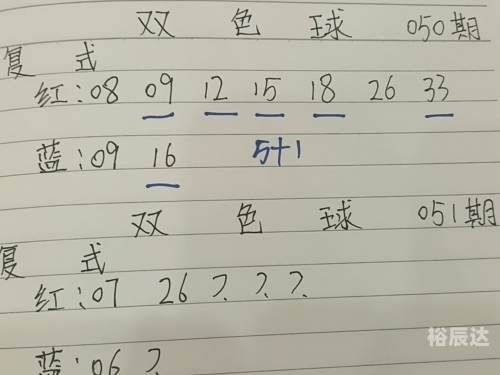 双 色 球 050期
复 式
红:08 09 12 15 18 26 33
蓝:09 16 5+1
双 色 球 051期
复 式
红:07 26 ? ? ?
蓝:06 ?
裕辰达